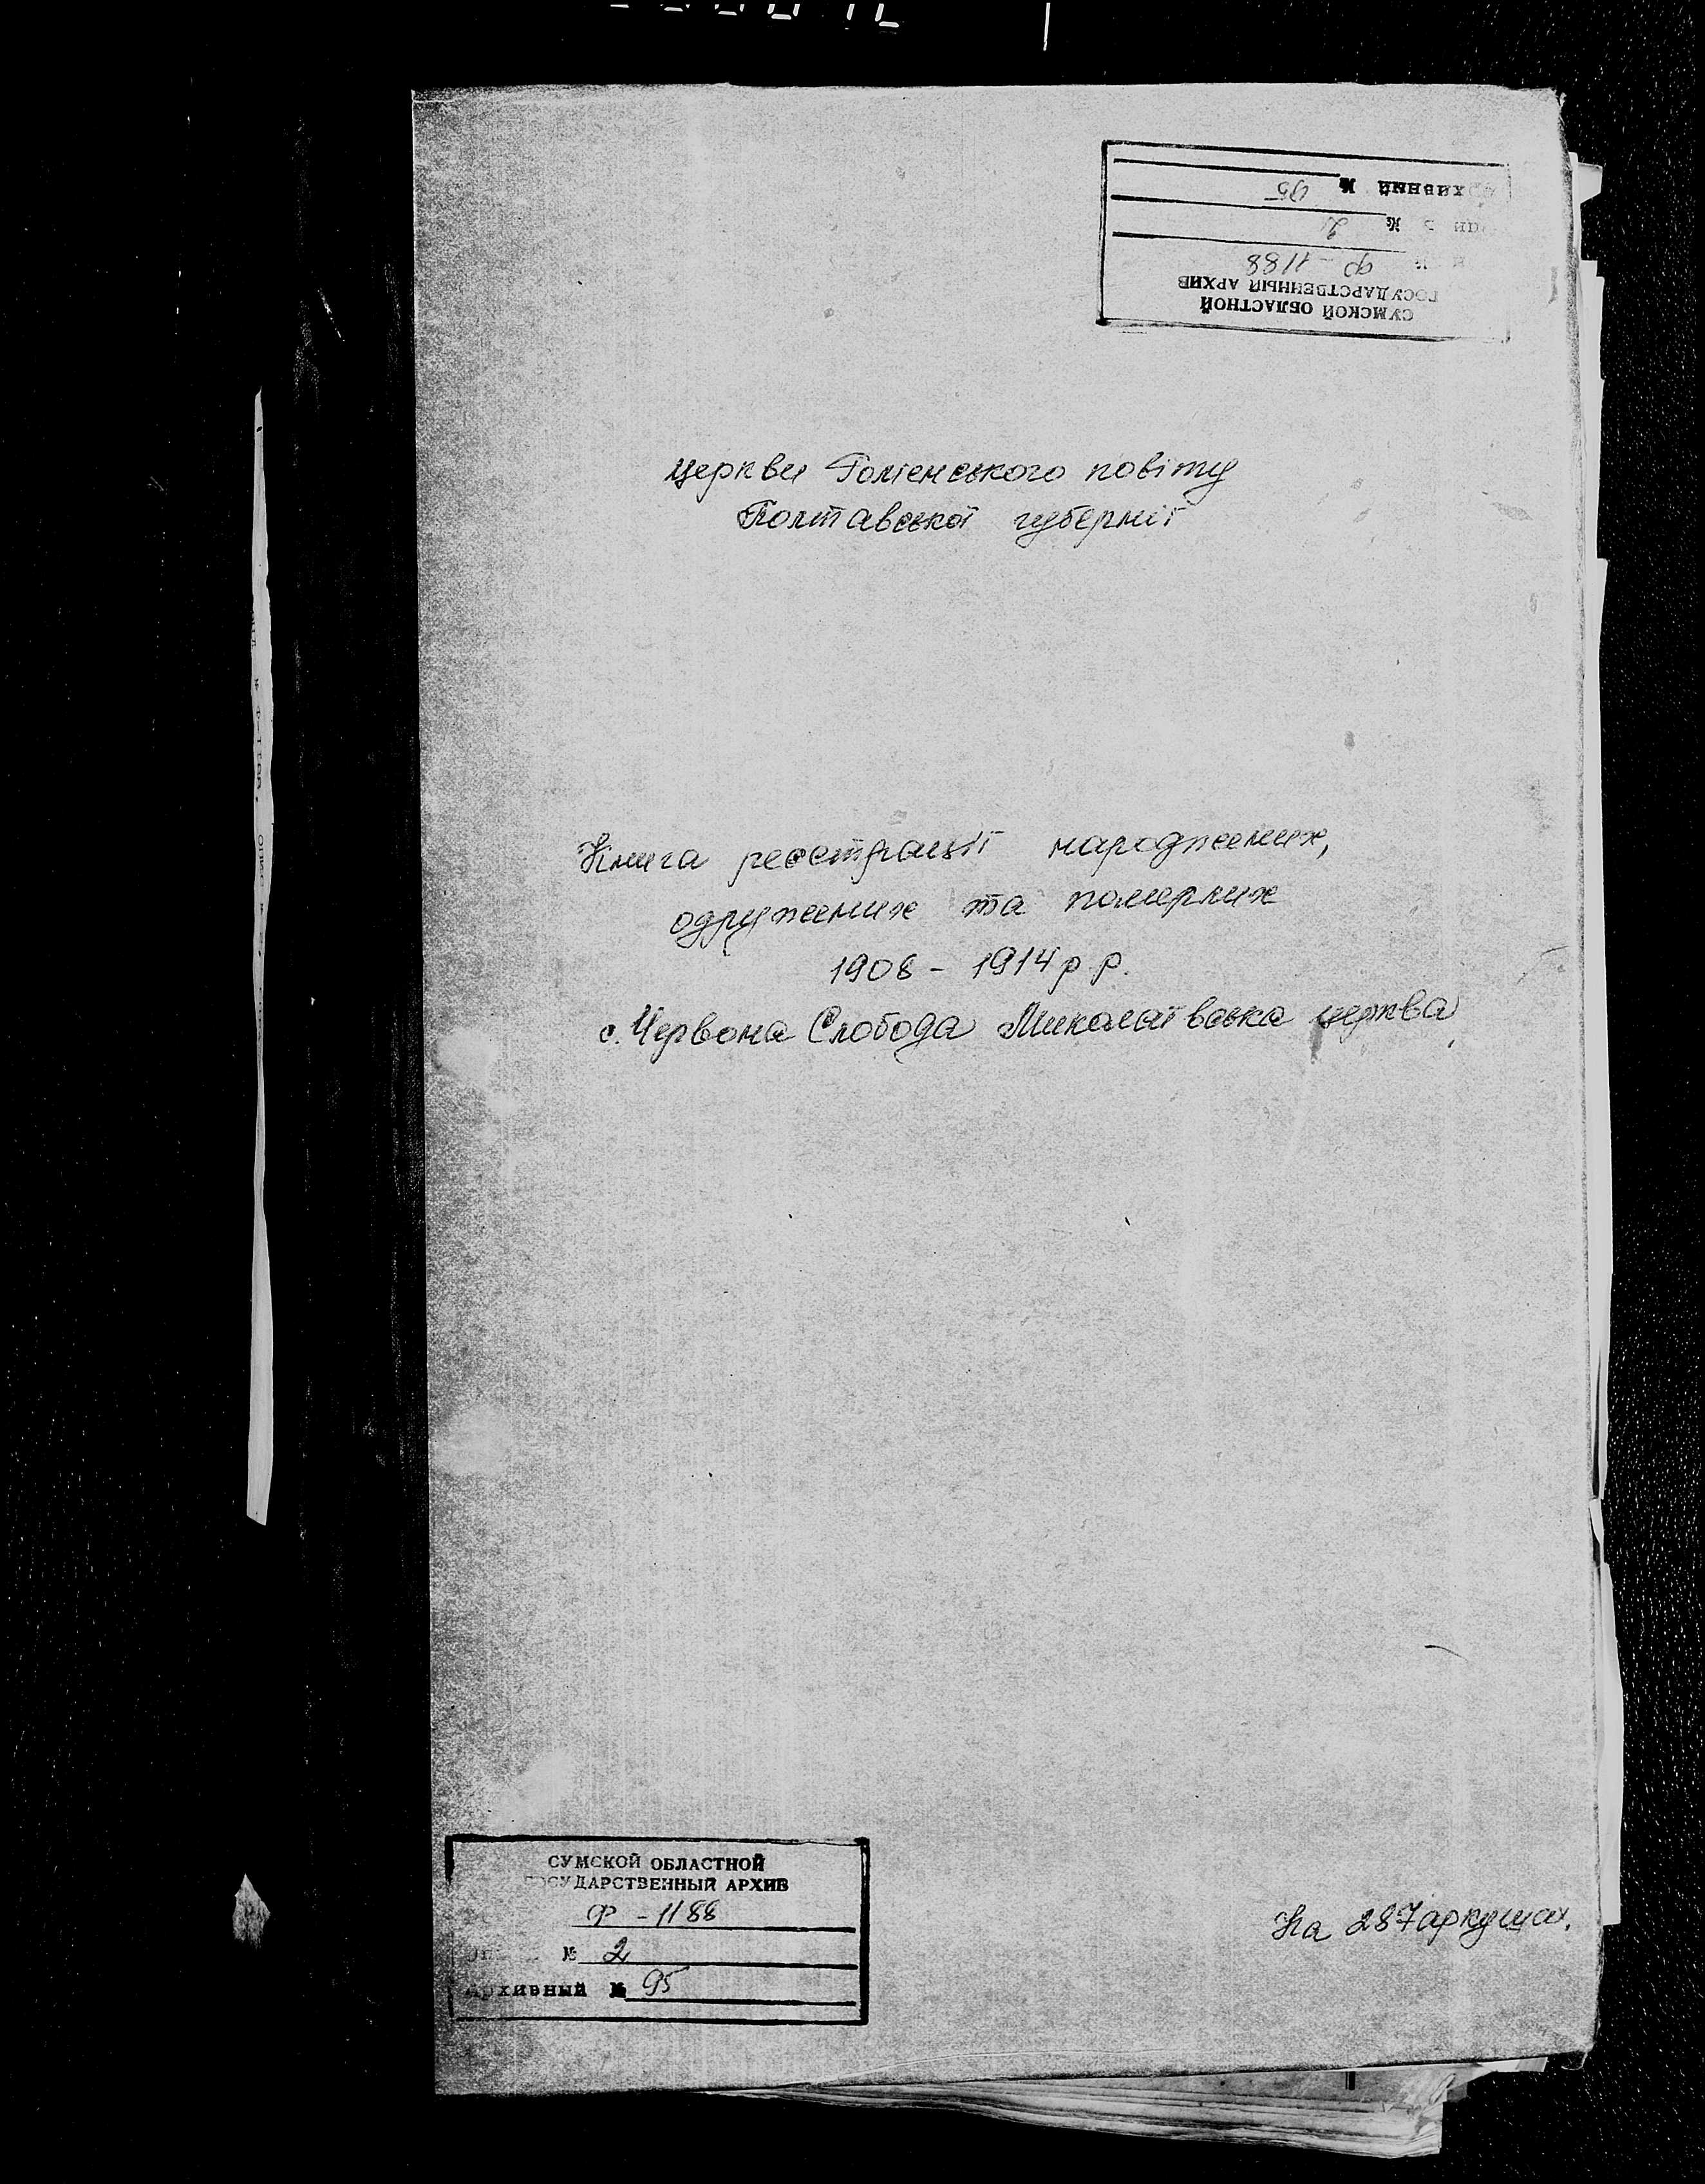 СУМСКОЙ ОБЛАСТНОЙ
ГОСУДАРСТВЕННЫЙ АРХИВ
Ф - 1188
№ 2
Архивный № 95
церкви Роменського повіту
Полтавської губернії
Книга реєстрації народжених,
одружених та померлих
1908 - 1914 р.р.
с. Червона Слобода Миколаївська церква
СУМСКОЙ ОБЛАСТНОЙ
ГОСУДАРСТВЕННЫЙ АРХИВ
Ф - 1188
№ 2
Архивный № 95
На 287 аркушах.